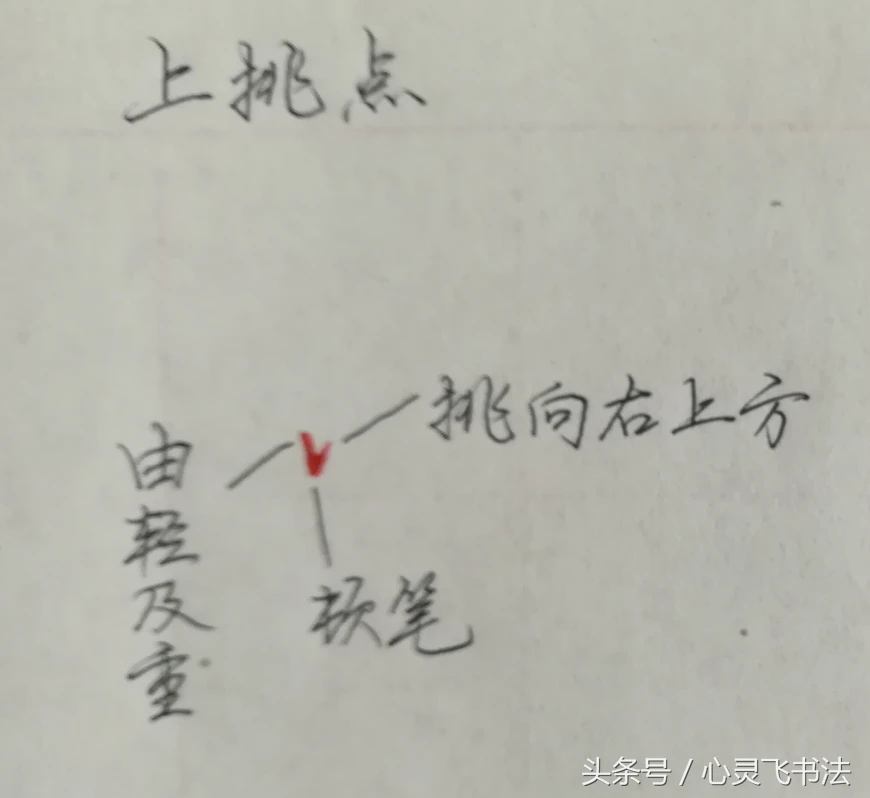 上挑点
挑向右上方
由轻及重
顿笔
头条号 / 心灵飞书法